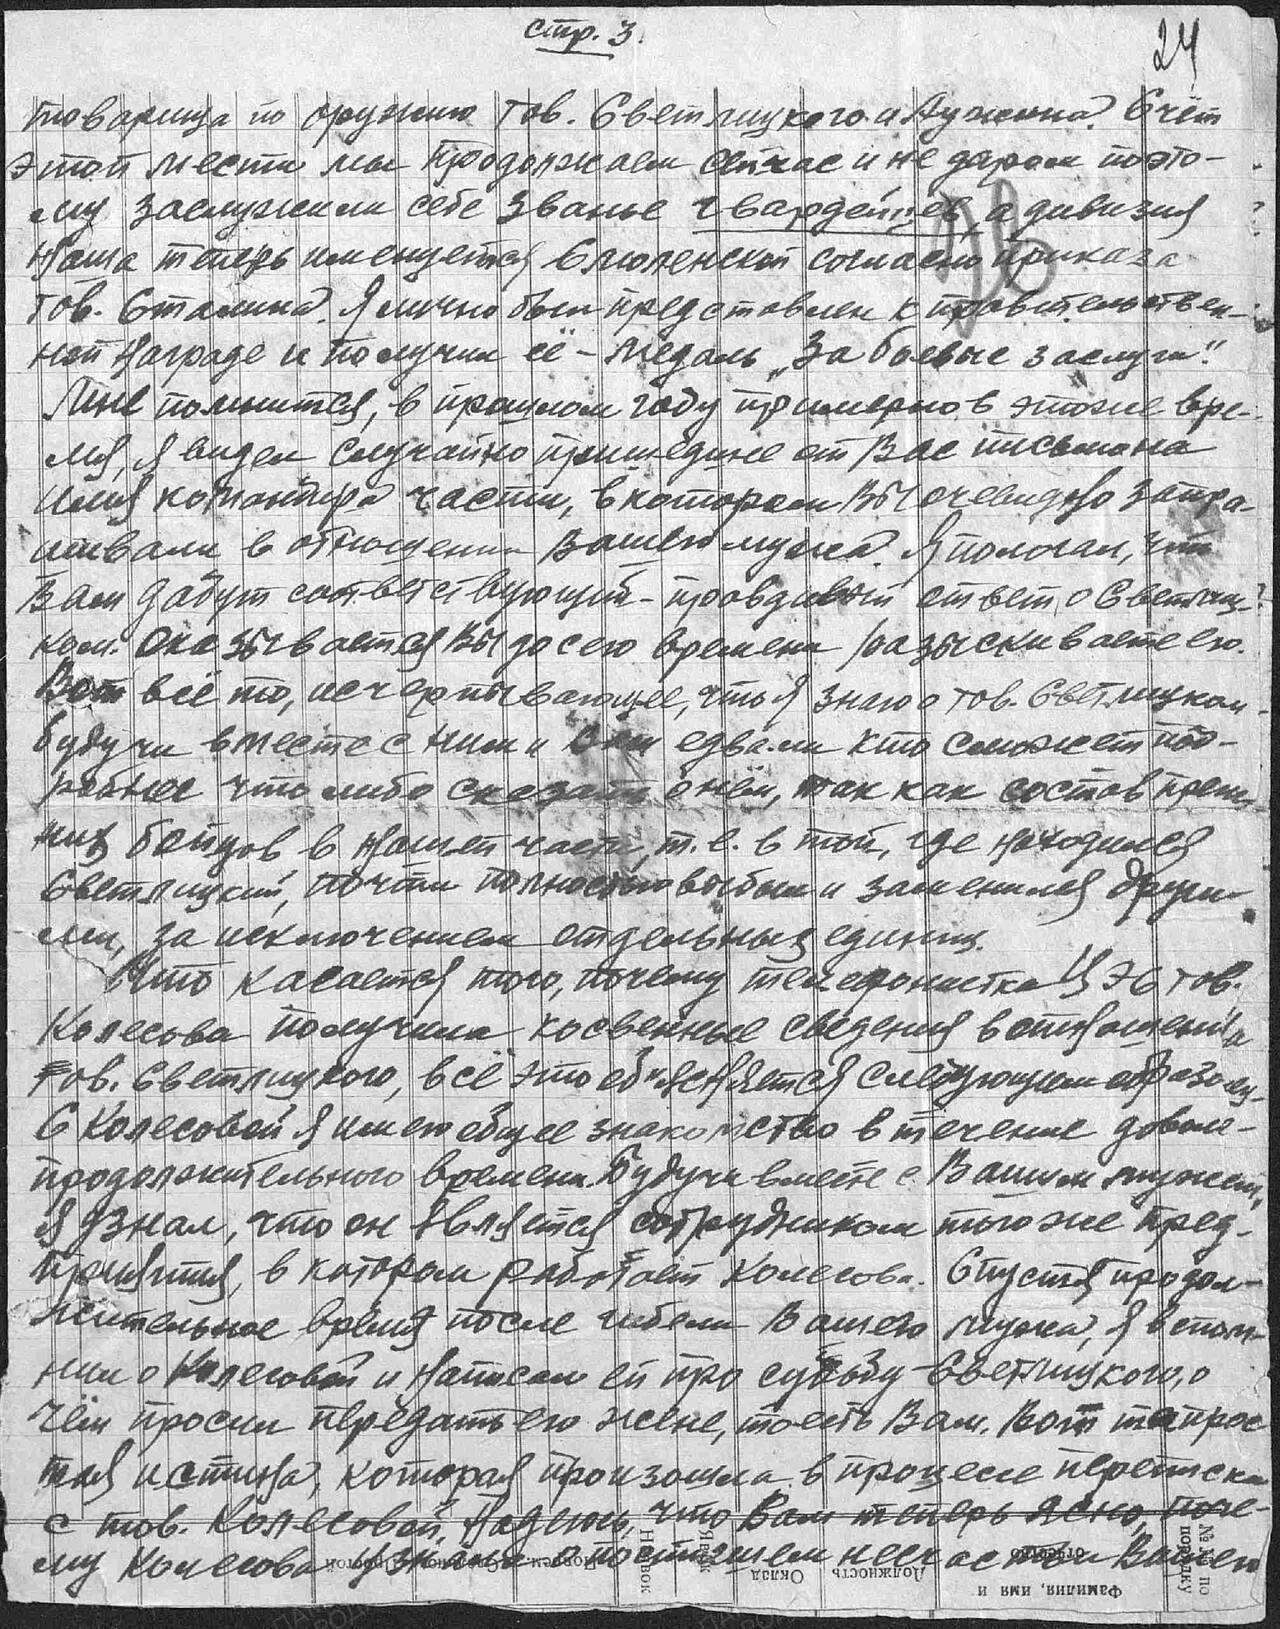 стр. 3.
24
26
товарища по оружию тов. Светлицкого и Лужина. Счёт
этой мести мы продолжаем сейчас и не даром поэто-
му заслужили себе званье гвардейцев, а дивизия
наша теперь именуется Смоленской согласно приказа
тов. Сталина. Я лично был представлен к правительствен-
ной награде и получил её - медаль „За боевые заслуги".
Мне помнится, в прошлом году примерно в это же вре-
мя, я видел случайно пришедшее от Вас письмо на
имя командира части, в котором Вы очевидно запра-
шивали в отношении Вашего мужа. Я полагал, что
Вам дадут соответствующий - правдивый ответ о Светлиц-
ком. Оказывается Вы до сего времени разыскиваете его.
Вот всё то, исчерпывающее, что я знаю о тов. Светлицком
будучи вместе с ним и едва ли кто сможет под-
робнее что либо сказать о нём, так как состав преж-
них бойцов в нашей части, т.е. в той, где находился
Светлицкий, почти полностью выбыл и заменился други-
ми, за исключением отдельных единиц.
Что касается того, почему телефонистка ЦЭС тов.
Колесова получила косвенные сведения в отношении
тов. Светлицкого, всё это объясняется следующим образом,
С Колесовой я имею общее знакомство в течение доволь-
продолжительного времени. Будучи вместе с Вашим мужем,
я узнал, что он является сотрудником того же пред-
приятия, в котором работает Колесова. Спустя продол-
жительное время после гибели Вашего мужа, я вспом-
нил о Колесовой и написал ей про судьбу Светлицкого, о
чём просил передать его жене, то есть Вам. Вот та прос-
тая истина, которая произошла в процессе переписки
с тов. Колесовой. Надеюсь, что Вам теперь ясно, поче-
му Колесова узнала о постигшем несчастьи Вашего
№№ по порядку
Фамилия, имя и отчество
Должность
Оклад